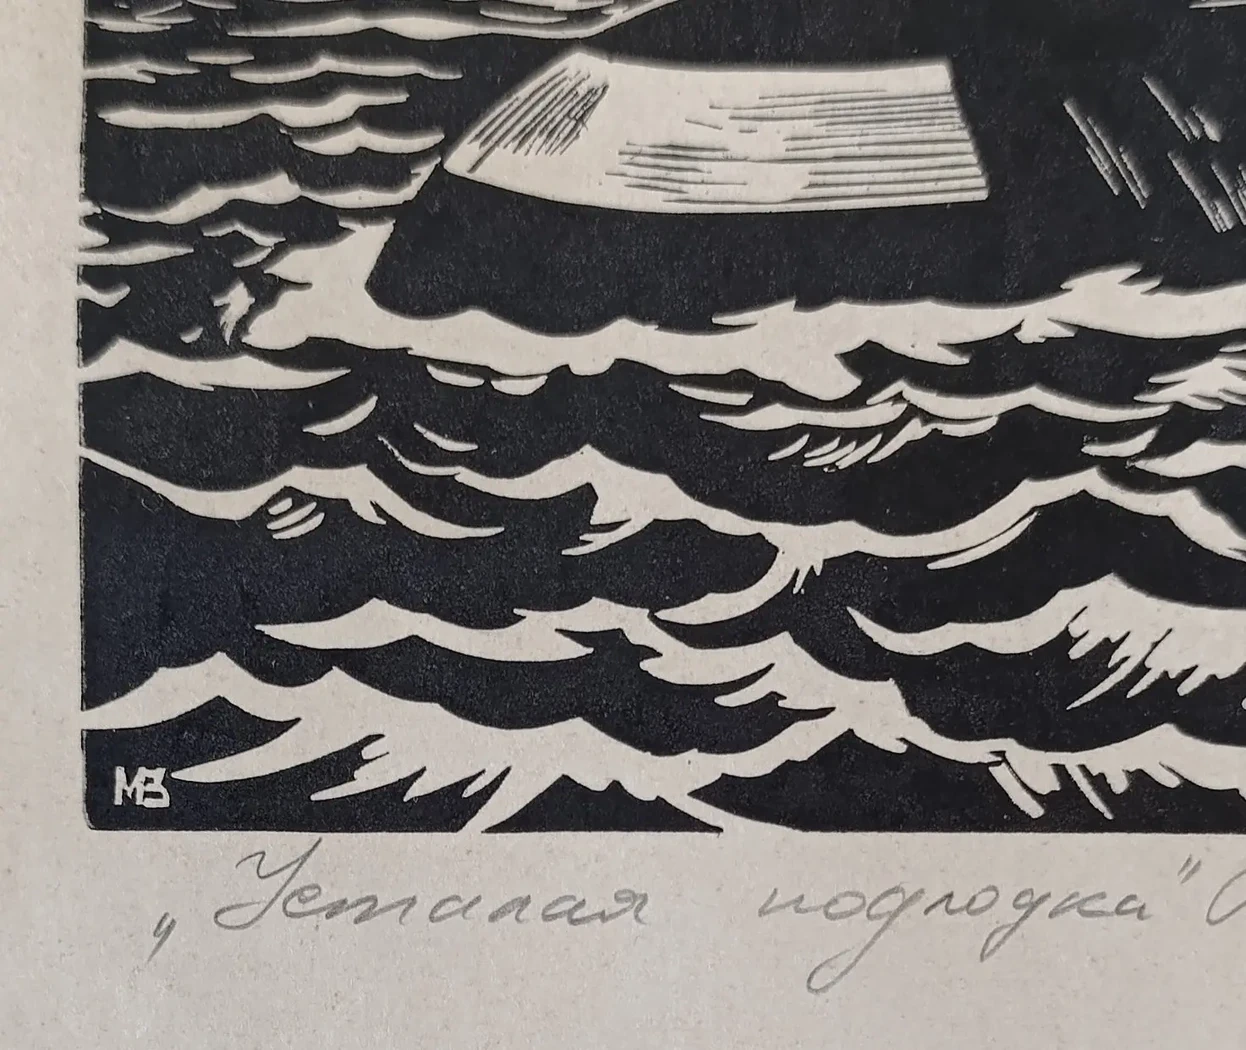 МВ
„Усталая подлодка"